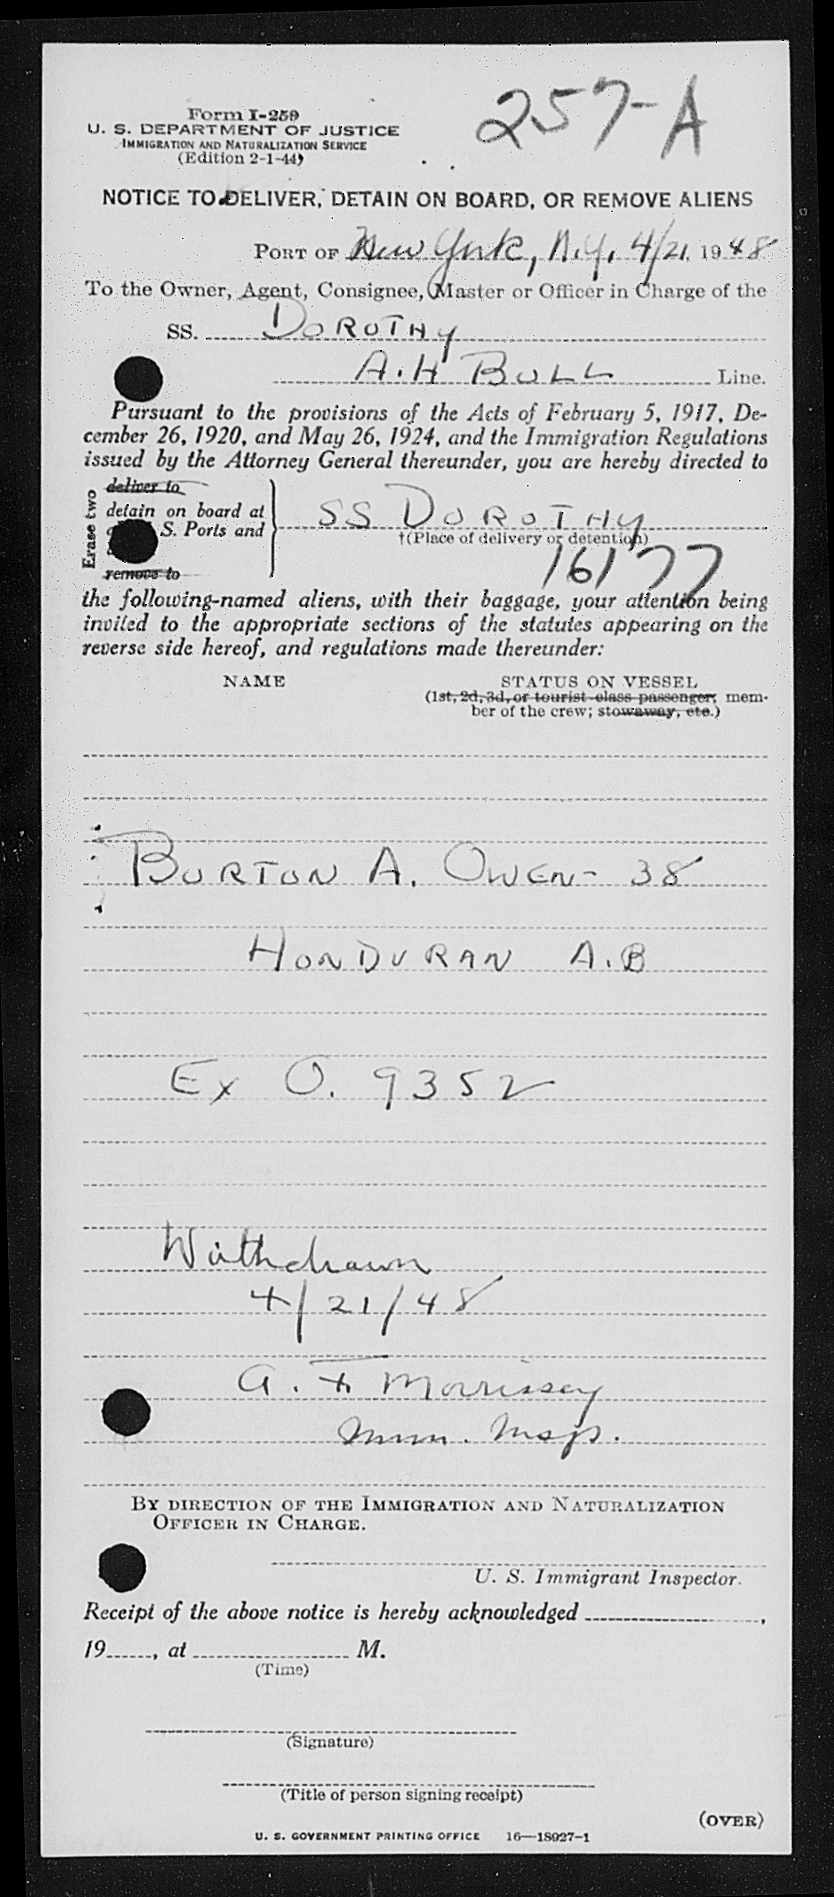 257-A
Form I-259
U. S. DEPARTMENT OF JUSTICE
IMMIGRATION AND NATURALIZATION SERVICE
(Edition 2-1-44)
NOTICE TO DELIVER, DETAIN ON BOARD, OR REMOVE ALIENS
PORT OF New York, N.Y. 4/21, 1948
To the Owner, Agent, Consignee, Master or Officer in Charge of the
SS. DOROTHY
A.H BULL Line.
Pursuant to the provisions of the Acts of February 5, 1917, De-
cember 26, 1920, and May 26, 1924, and the Immigration Regulations
issued by the Attorney General thereunder, you are hereby directed to
Erase two
deliver to
detain on board at
S. Ports and
remove to
SS DOROTHY
†(Place of delivery or detention)
16177
the following-named aliens, with their baggage, your attention being
invited to the appropriate sections of the statutes appearing on the
reverse side hereof, and regulations made thereunder:
NAME STATUS ON VESSEL
(1st, 2d, 3d, or tourist class passenger; mem-
ber of the crew; stowaway, etc.)
BURTON A. OWEN- 38
HONDURAN A.B
Ex O. 9352
Withdrawn
4/21/48
A. F. Morrissey
Imm. Insp.
BY DIRECTION OF THE IMMIGRATION AND NATURALIZATION
OFFICER IN CHARGE.
U. S. Immigrant Inspector.
Receipt of the above notice is hereby acknowledged ,
19 , at M.
(Time)
(Signature)
(Title of person signing receipt)
(OVER)
U. S. GOVERNMENT PRINTING OFFICE 16—18927-1